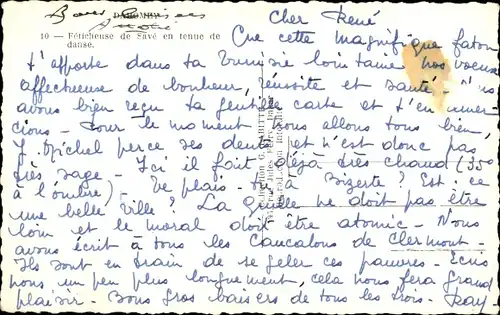 Bons Baisers
DAHOMEY
André
10 — Féticheuse de Savé en tenue de
danse.
Cher René
Que cette magnifique
t'apporte dans ta Tunisie lointaine nos voeux
affectueux de bonheur, réussite et santé - N's
avons bien reçu ta gentille carte et t'en remer
cions - Pour le moment nous allons tous bien,
J. Michel perce ses dents et n'est donc pas
très sage - Ici il fait déjà très chaud (35°
à l'ombre) - Te plais-tu à Bizerte ? Est-ce
une belle ville ? La quille ne doit pas être
loin et le moral doit être atomic - Nous
avons écrit à tous les Caucalons de Clermont -
Ils sont en train de se geler ces pauvres - Ecris
nous un peu plus longuement, cela nous fera grand
plaisir - Bons gros baisers de tous les trois - Ray